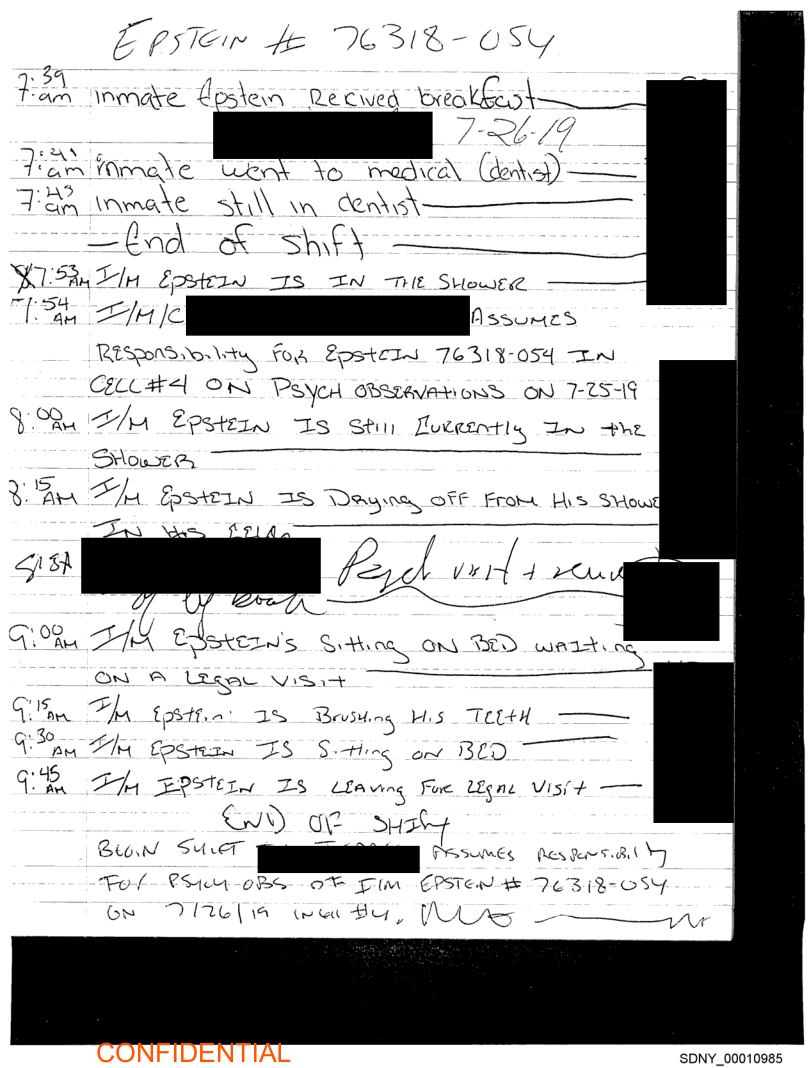 EPSTEIN # 76318-054
7:39
7:am inmate Epstein Recived breakfast
7-26-19
7:41
7:am inmate went to medical (dentist)
7:43
am inmate still in dentist
— End of shift
7:53 AM I/M EPSTEIN IS IN THE SHOWER
7:54 AM I/M/C ASSUMES
RESponsibility FOR EpstEIN 76318-054 IN
CELL #4 ON PSYCH OBSERVATIONS ON 7-25-19
8:00 AM I/M EPSTEIN IS Still CURRENtly IN thE
SHOWER
8:15 AM I/M EpstEIN IS DRying OFF FROM His SHOWE
IN His
Psych visit +
9:00 AM I/M EpSTEIN'S Sitting ON BED WAIting
ON A LEGAL VISIT
9:15 AM I/M Epstein IS Brushing His TEETH
9:30 AM I/M EpstEIN IS Sitting ON BED
9:45 AM I/M EPSTEIN IS LEAving For LEgAL Visit
END OF SHIFT
BEGIN SHIFT ASSUMES RESPONSIBILITY
FOR PSYCH OBS OF I/M EPSTEIN # 76318-054
ON 7/26/19 IN CELL #4.
CONFIDENTIAL
SDNY_00010985